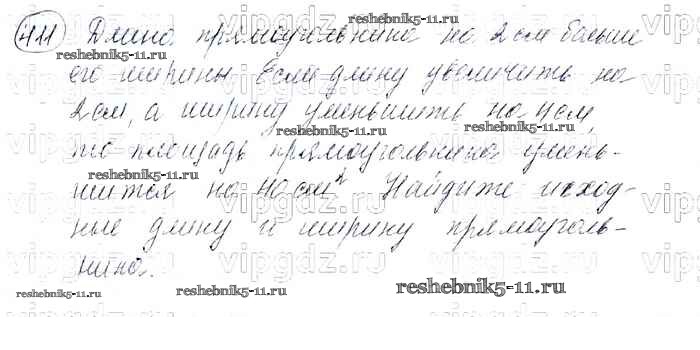 411 Длина прямоугольника на 2 см больше
его ширины. Если длину увеличить на
2 см, а ширину уменьшить на 4 см,
то площадь прямоугольника умень-
шится на 40 см². Найдите исход-
ные длину и ширину прямоуголь-
ника.
reshebnik5-11.ru
reshebnik5-11.ru
reshebnik5-11.ru
reshebnik5-11.ru
reshebnik5-11.ru
reshebnik5-11.ru
reshebnik5-11.ru
reshebnik5-11.ru
reshebnik5-11.ru